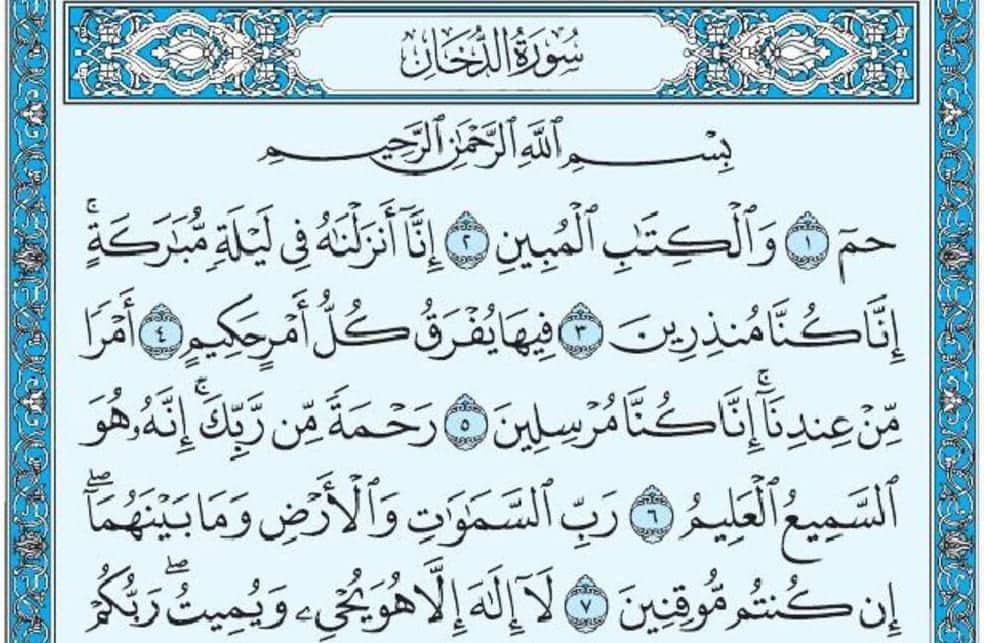 سُورَةُ الدُّخَانِ
بِسْمِ ٱللَّهِ ٱلرَّحْمَٰنِ ٱلرَّحِيمِ
حمٓ ١ وَٱلْكِتَٰبِ ٱلْمُبِينِ ٢ إِنَّآ أَنزَلْنَٰهُ فِى لَيْلَةٍ مُّبَٰرَكَةٍ ۚ
إِنَّا كُنَّا مُنذِرِينَ ٣ فِيهَا يُفْرَقُ كُلُّ أَمْرٍ حَكِيمٍ ٤ أَمْرًا
مِّنْ عِندِنَآ ۚ إِنَّا كُنَّا مُرْسِلِينَ ٥ رَحْمَةً مِّن رَّبِّكَ ۚ إِنَّهُۥ هُوَ
ٱلسَّمِيعُ ٱلْعَلِيمُ ٦ رَبِّ ٱلسَّمَٰوَٰتِ وَٱلْأَرْضِ وَمَا بَيْنَهُمَآ ۖ
إِن كُنتُم مُّوقِنِينَ ٧ لَآ إِلَٰهَ إِلَّا هُوَ يُحْىِۦ وَيُمِيتُ ۖ رَبُّكُمْ